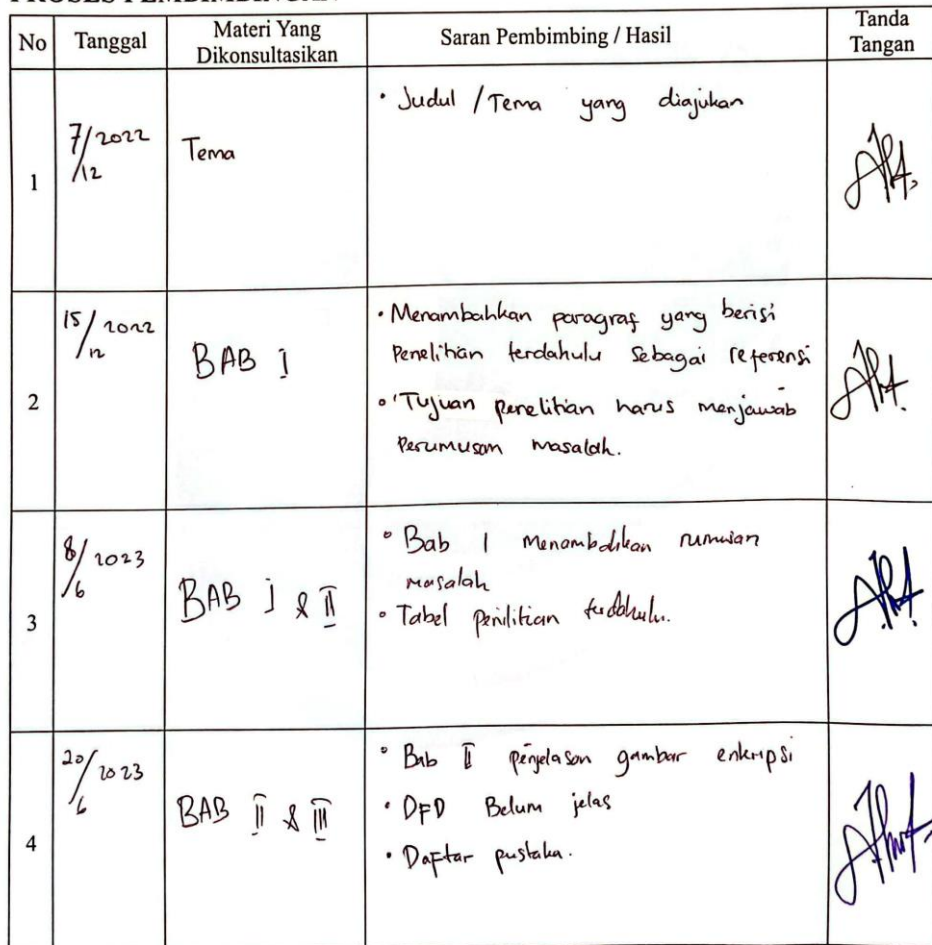 PROSES PEMBIMBINGAN
No Tanggal Materi Yang Dikonsultasikan Saran Pembimbing / Hasil Tanda Tangan
1 7/12 2022 Tema • Judul / Tema yang diajukan
2 15/12 2022 BAB I • Menambahkan paragraf yang berisi
Penelitian terdahulu sebagai referensi
• Tujuan penelitian harus menjawab
Perumusan masalah.
3 8/6 2023 BAB I & II • Bab I menambahkan rumusan
masalah
• Tabel penilitian terdahulu.
4 20/6 2023 BAB II & III • Bab II penjelasan gambar enkripsi
• DFD Belum jelas
• Daftar pustaka.